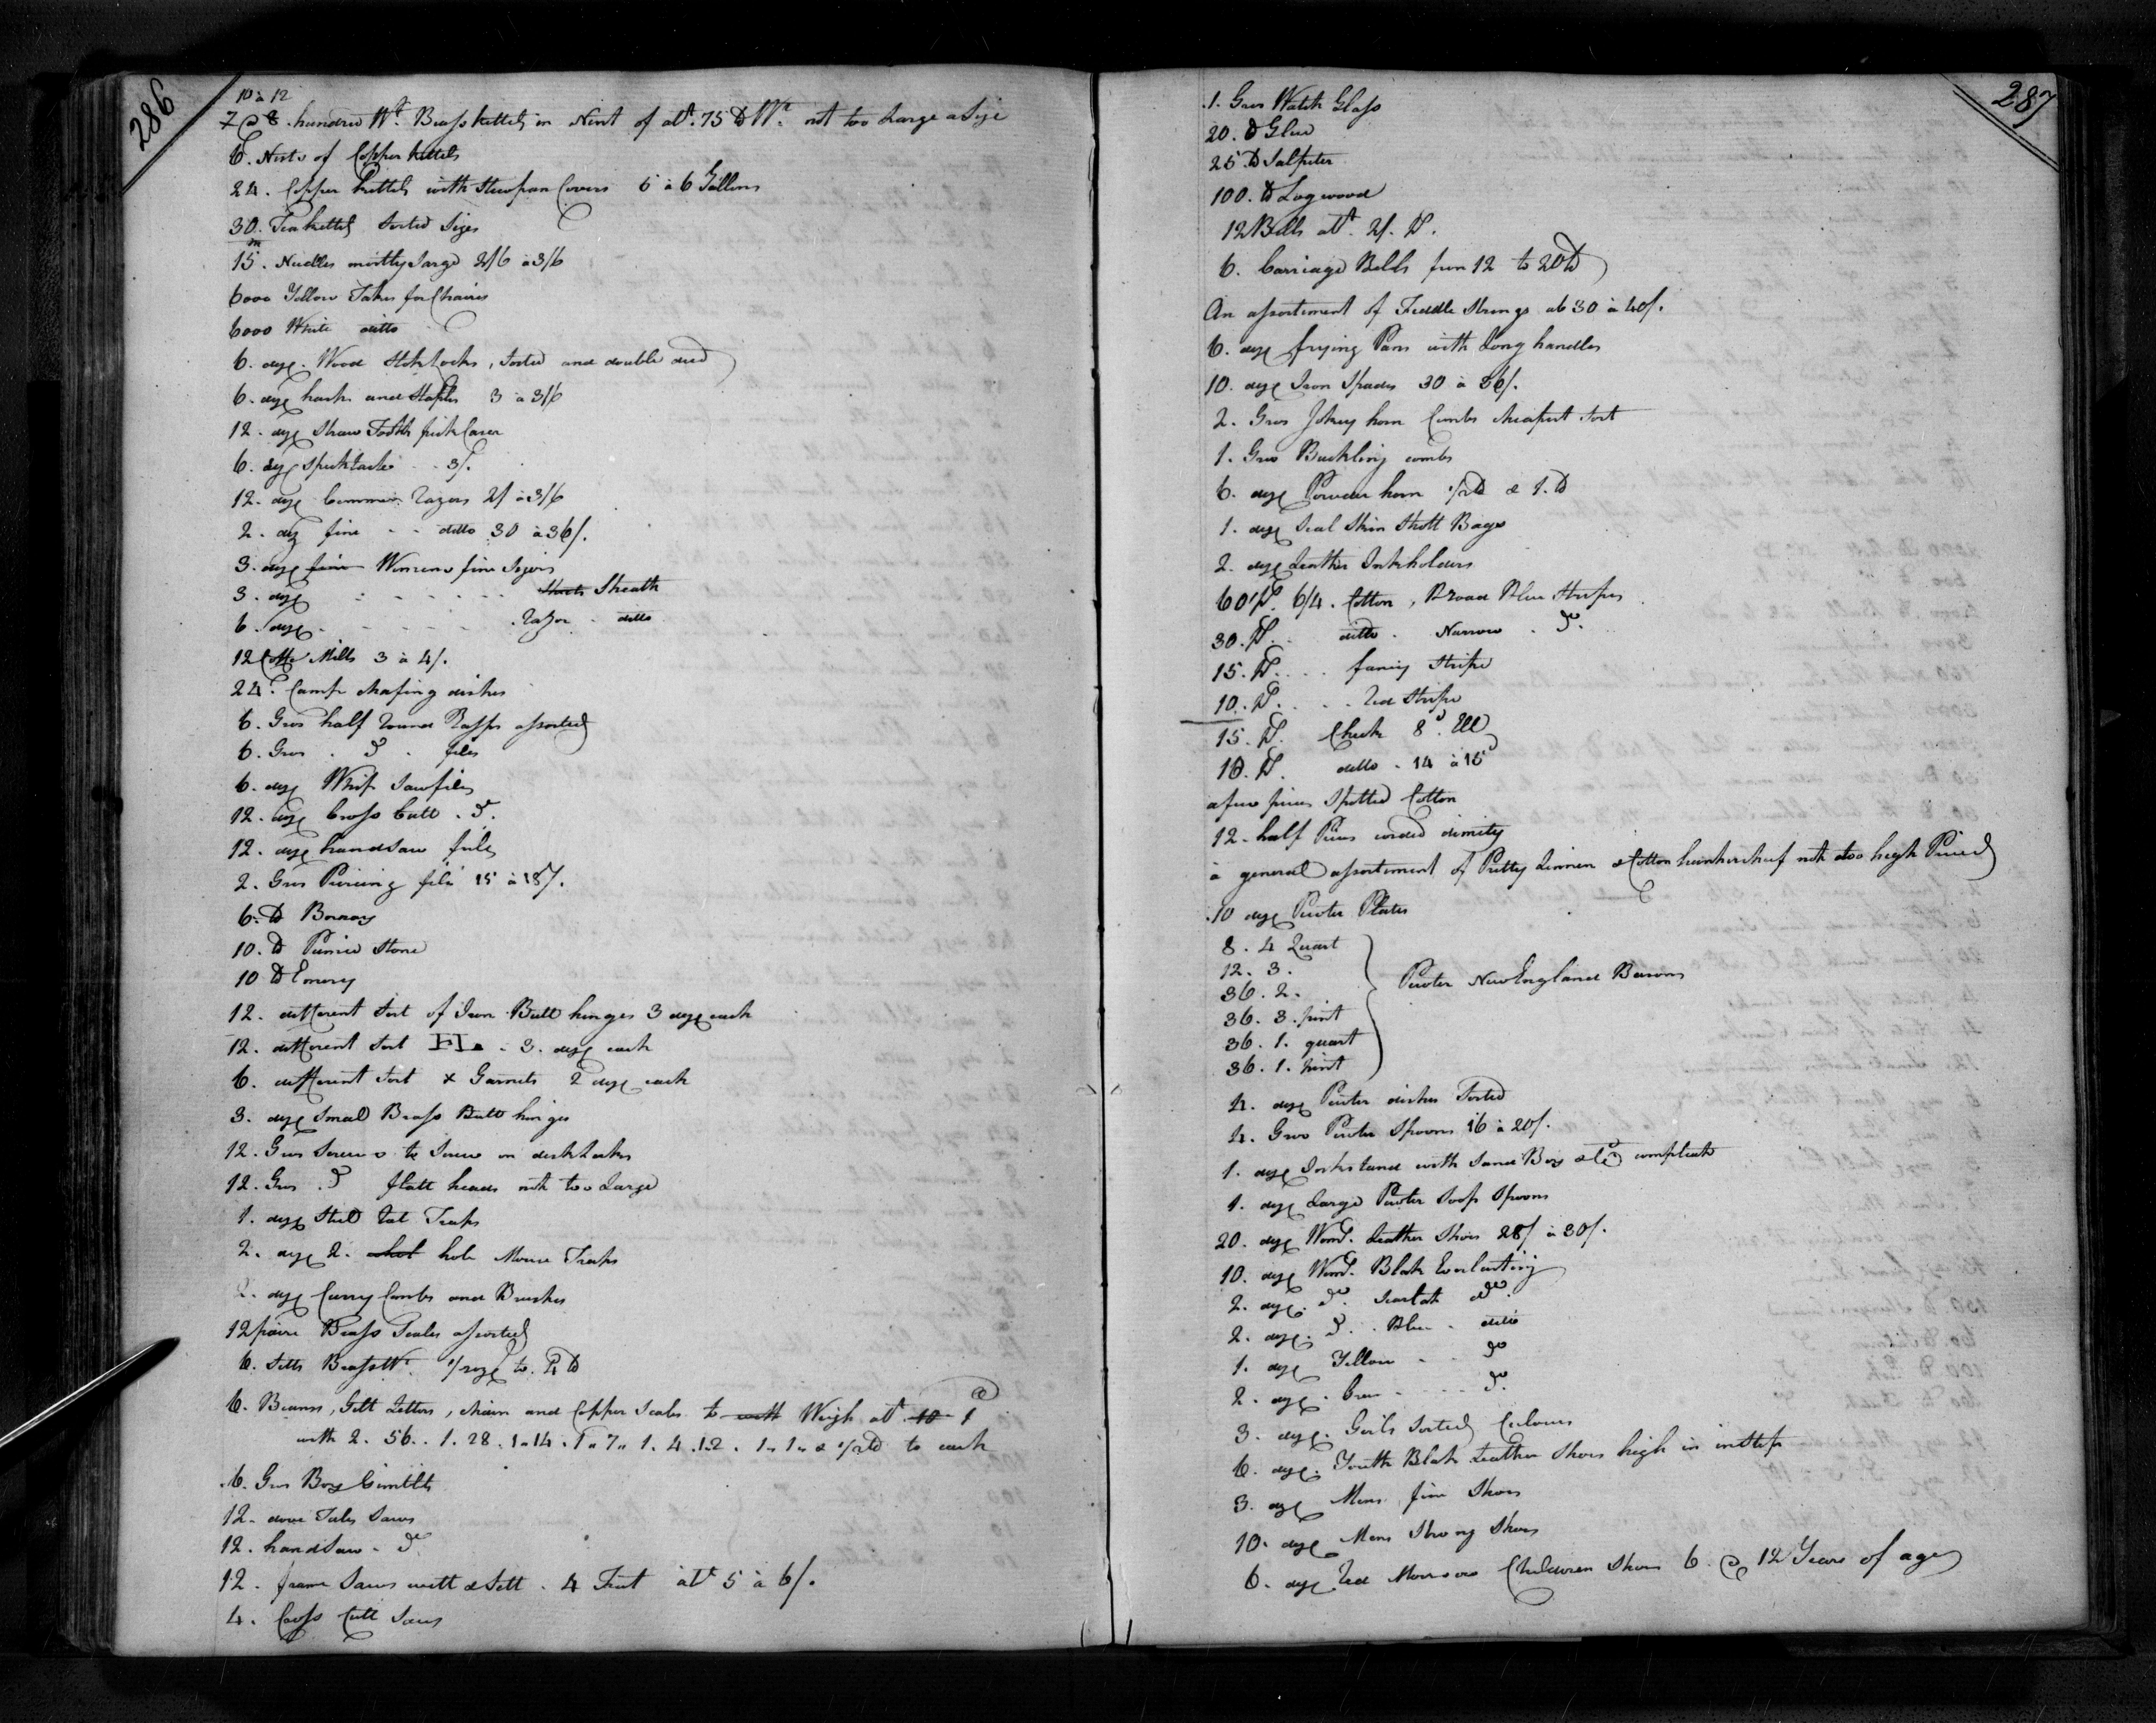 286
10 à 12
7 @ 8 hundred Wt. Brass kettels in Nest of abt. 75 lb Wt. not too Large a Size
6. Nests of Copper kettels
24. Copper kettels with Stewpan Covers 5 à 6 Gallons
30. Teakettels Sorted Sizes
15.m Needles mostly Large 2/6 à 3/6
6000 Yellow Takes for Chaires
6000 White ditto
6. doze. Wood Stoklocks, Sorted and double
6. doze hasks and Staples 3 à 3/6
12. doze Straw Tooth pick Cases
6. doze Specktacles - - 3/.
12. doze Common Razors 2/ à 3/6
2. doz fine - - ditto 30 à 36/.
3. doze fine Womens fine Sizers
3. doze - - - - - - Sheath
6. doze - - - - - Razor - ditto
12 Coffe Mills 3 à 4/.
24. Camp Chafing dishes
6. Gros half Round Rasps assorted
6. Gros . do . files
6. doze Whip Sawfiles
12. doze Cross Cutt . do.
12. doze handsaw files
2. Gros Piercing files 15 à 18/.
6. lb Borrax
10. lb Pumice Stone
10 lb Emery
12. different Sort of Iron Butt hinges 3 doze each
12. different Sort HL. - 3. doze each
6. different Sort x Garnets 2 doze each
3. doze Small Brass Butt hinges
12. Gros Screws to Screw on desk Lockes
12. Gros . do flatt heads not too Large
1. doze Steel Rat Traps
2. doze 2. hole Mouse Traps
2. doze Curry Combs and Brushes
12 paire Brass Scales assorted
6. Setts Brass Wt. to 2 lb
6. Beams, Gilt Letters, Chain and Copper Scales to with Weigh abt. 10 1 @
with 2. 56. . 1. 28. 1. 14. 1. 7. 1. 4. 1. 2. 1. 1. & 1/2 lb to each
6. Gros Box Gimlets
12. dove Tailes Saws
12. handSaw - do
12. frame Saws with & Sett - 4 Feet abt 5 à 6/.
4. Cross Cutt Saws
287
1. Gros Watch Glass
20. lb Glue
25 lb Salpeter
100. lb Logwood
12 Bells abt. 2/. P.
6. Carriage Bells from 12 to 20 lb
An assortement of Fiddle Strings ab 30 à 40/.
6. doze frying Pans with Long handles
10. doze Iron Spades 30 à 36/.
2. Gros Jokey horn Combs cheapest Sort
1. Gros Buckling combs
6. doze Powder horn 1/2 lb & 1. lb
1. doze Seal Skin Shott Bags
2. doze Leather Inkholders
60 P. 6/4. Cotton, Broad Blue Stripes
30. P. ditto - Narrow - do.
15. P. . . . fancy Stripe
10. P. . . . Red Stripe
15. P. Check 8d. Ell
10. P. ditto - 14 à 15d
a few pieces Spotted Cotton
12. half Pieces corded dimity
a general assortement of Pretty Linnen & Cotton hankerchief not too high Priced
10 doze Pewter Plates
8. 4 Quart
12. 3.
36. 2.
36. 3. pint
36. 1. quart
36. 1. pint
Pewter New England Basons
4. doze Pewter dishes Sorted
4. Gros Pewter Spoons 16 à 20/.
1. doze Inkstand with Sand Box &c compleate
1. doze Large Pewter Soop Spoons
20. doze Womd. Leather Shoes 28/ à 30/.
10. doze Womd. Blak Everlasting
2. doze. do. Scarlat do.
2. doze. do. . Blue - ditto
1. doze Yellow - - do
2. doze. - - - do.
3. doze. Girls Sorted Colours
6. doze. Youth Blak Leather Shoes high in instep
3. doze Mens fine Shoes
10. doze Mens Strong Shoes
6. doze Red Morrocco Children Shoes 6. @ 12 Years of age